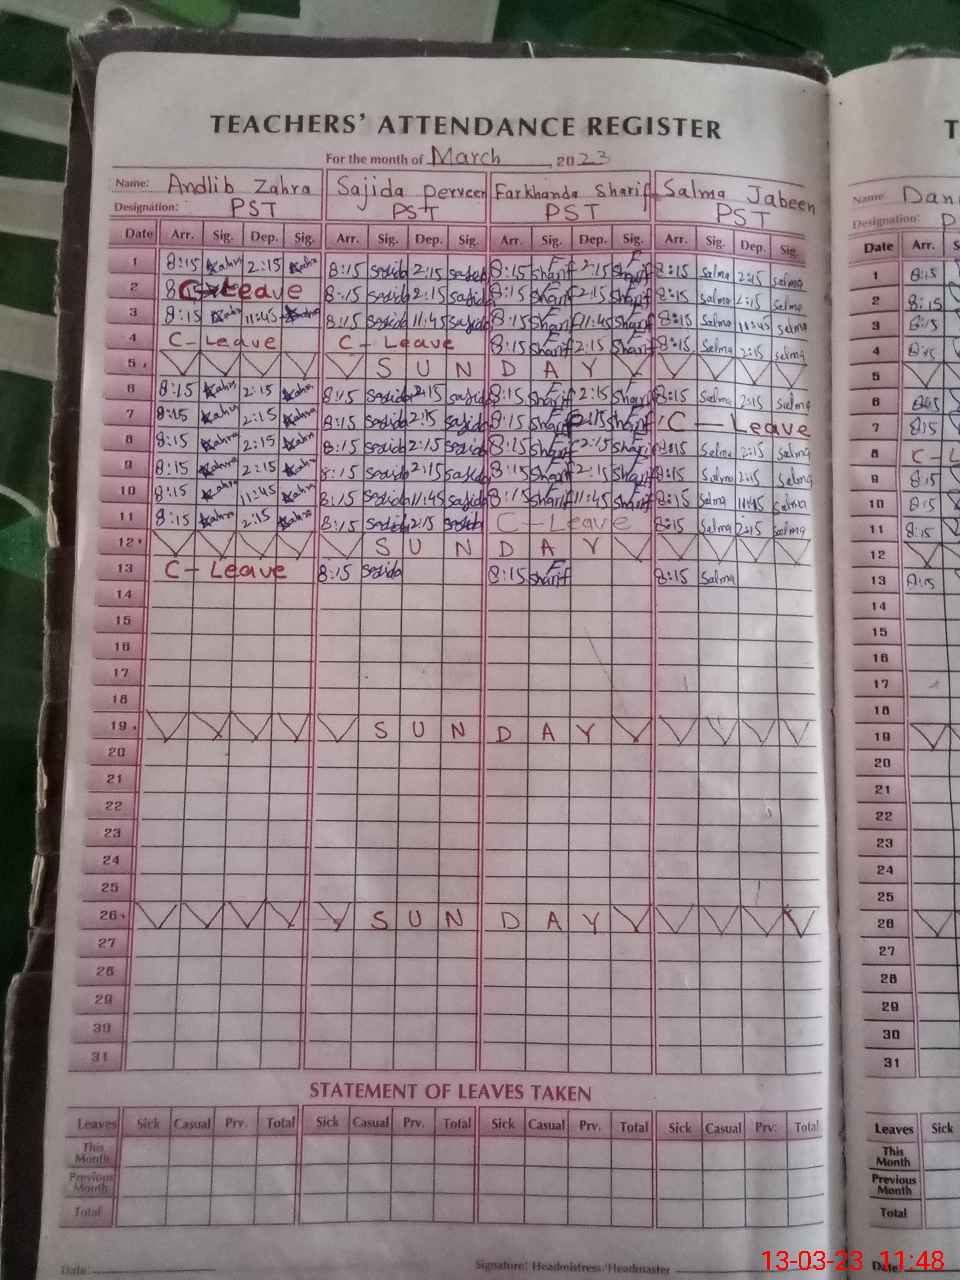 TEACHERS' ATTENDANCE REGISTER
For the month of March, 2023
Name: Andlib Zahra Sajida Perveen Farkhanda Sharif Salma Jabeen Name: Dan
Designation: PST PST PST PST Designation: P
Date Arr. Sig. Dep. Sig. Arr. Sig. Dep. Sig. Arr. Sig. Dep. Sig. Arr. Sig. Dep. Sig. Date Arr. S
1 8:15 Zahra 2:15 Zahra 8:15 Sajida 2:15 Sajida 8:15 F Sharif 2:15 F Sharif 8:15 Salma 2:15 Salma 1 8:15
2 8 C-Leave 8:15 Sajida 2:15 Sajida 8:15 F Sharif 2:15 F Sharif 8:15 Salma 2:15 Salma 2 8:15
3 8:15 Zahra 11:45 Zahra 8:15 Sajida 11:45 Sajida 8:15 F Sharif 11:45 F Sharif 8:15 Salma 11:45 Salma 3 8:15
4 C-Leave C-Leave 8:15 F Sharif 2:15 F Sharif 8:15 Salma 2:15 Salma 4 8:15
5 S U N D A Y 5
6 8:15 Zahra 2:15 Zahra 8:15 Sajida 2:15 Sajida 8:15 F Sharif 2:15 F Sharif 8:15 Salma 2:15 Salma 6 8:15
7 8:15 Zahra 2:15 Zahra 8:15 Sajida 2:15 Sajida 8:15 F Sharif 2:15 F Sharif C-Leave 7 8:15
8 8:15 Zahra 2:15 Zahra 8:15 Sajida 2:15 Sajida 8:15 F Sharif 2:15 F Sharif 8:15 Salma 2:15 Salma 8 C-L
9 8:15 Zahra 2:15 Zahra 8:15 Sajida 2:15 Sajida 8:15 F Sharif 2:15 F Sharif 8:15 Salma 2:15 Salma 9 8:15
10 8:15 Zahra 11:45 Zahra 8:15 Sajida 11:45 Sajida 8:15 F Sharif 11:45 F Sharif 8:15 Salma 11:45 Salma 10 8:15
11 8:15 Zahra 2:15 Zahra 8:15 Sajida 2:15 Sajida C-Leave 8:15 Salma 2:15 Salma 11 8:15
12 S U N D A Y 12
13 C-Leave 8:15 Sajida 8:15 F Sharif 8:15 Salma 13 8:15
14 14
15 15
16 16
17 17
18 18
19 S U N D A Y 19
20 20
21 21
22 22
23 23
24 24
25 25
26 S U N D A Y 26
27 27
28 28
29 29
30 30
31 31
STATEMENT OF LEAVES TAKEN
Leaves Sick Casual Prv. Total Sick Casual Prv. Total Sick Casual Prv. Total Sick Casual Prv: Total Leaves Sick
This Month This Month
Previous Month Previous Month
Total Total
Date: Signature: Headmistress/Headmaster Date:
13-03-23 11:48